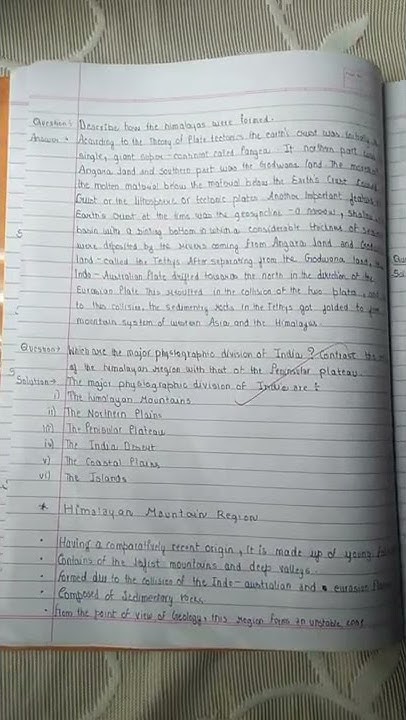 Question:- Describe how the himalayas were formed.
Answer:- According to the Theory of Plate tectonics, the earth's crust was initially a
single, giant super-continent called Pangea. It northern part was
Angara land and southern part was the Godwana land The
the molten material below the material below the Earth's Crust
Crust or the lithospheric or tectonic plates Another Important feature
Earth's crust at the time was the geosyncline - a narrow, shallow
basin with a sinking bottom in which a considerable thickness of
were deposited by the rivers coming from Angara land and
land - called the Tethys After separating from the Godwana land,
Indo - Australian Plate drifted towards the north in the direction of the
Eurasian Plate This resulted in the collision of the two plates, and
to this collision, the sedimentary rocks in the Tethys got folded to form
mountain system of western Asia and the Himalayas.
Question:- Which are the major physiographic division of India? Contrast the
of the himalayan region with that of the Peninsular plateau.
Solution:- The major physiographic division of India are :
i) The himalayan Mountains
ii) The Northern Plains
iii) The Penisular Plateau
iv) The India Desert
v) The Coastal Plains
vi) The Islands
* Himalayan Mountain Region
• Having a comparatively recent origin, it is made up of young
• Contains of the lofist mountains and deep valleys.
• formed due to the collision of the Indo-australian and eurasian
• Composed of Sedimentary rocks
• from the point of view of Geology, this region forms an unstable zone